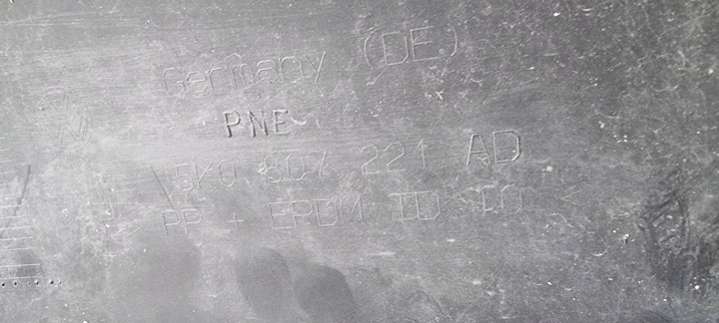 Germany (DE)
PNE
5K0 807 221 AD
PP + EPDM TD 10